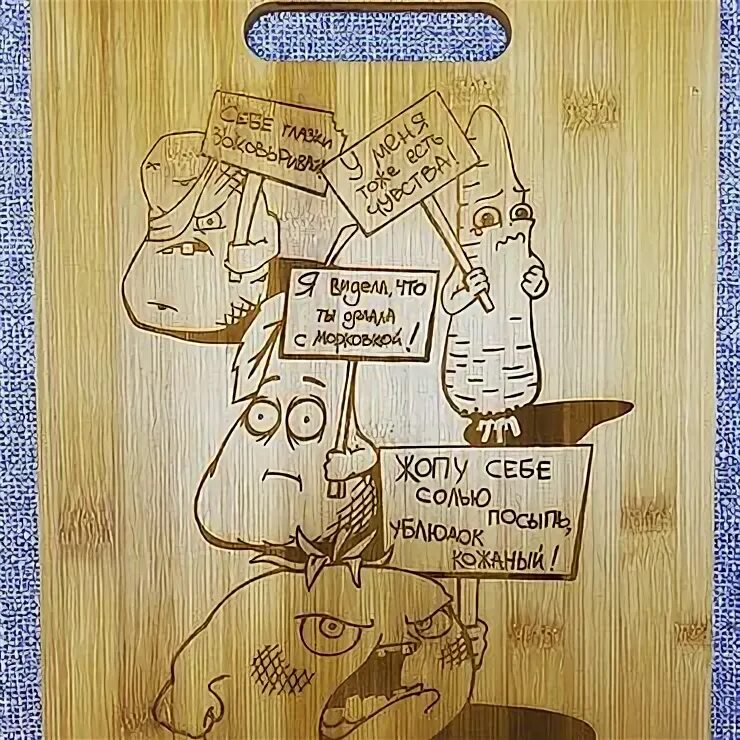 СЕБЕ ГЛАЗКИ
ВЫКОВЫРИВАЙ!
У МЕНЯ
ТОЖЕ ЕСТЬ
ЧУВСТВА!
Я Видела, что
ты делала
с Морковкой!
ЖОПУ СЕБЕ
СОЛЬЮ
ПОСЫПЬ,
УБЛЮДОК
КОЖАНЫЙ!